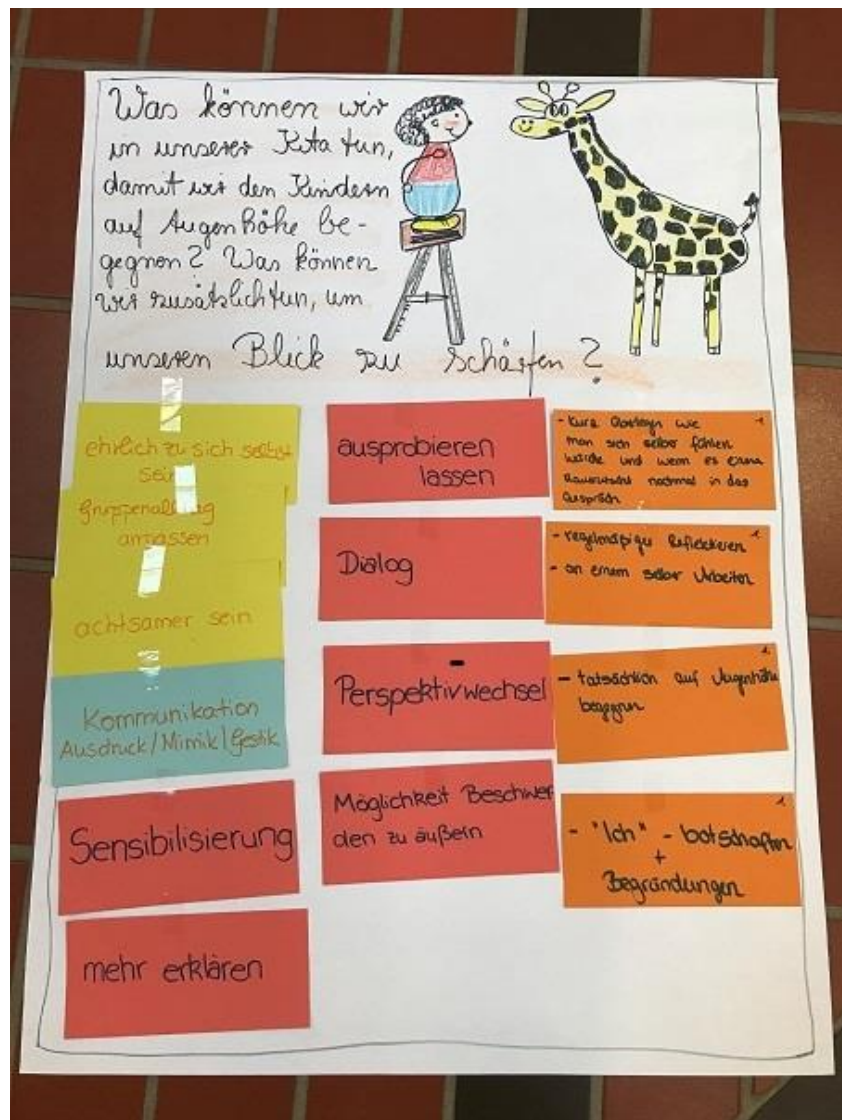 Was können wir
in unserer Kita tun,
damit wir den Kindern
auf Augenhöhe be-
gegnen? Was können
wir zusätzlich tun, um
unseren Blick zu schärfen?
ehrlich zu sich selbst
sein
Gruppenalltag
anpassen
achtsamer sein
Kommunikation
Ausdruck/Mimik/Gestik
Sensibilisierung
mehr erklären
ausprobieren
lassen
Dialog
Perspektivwechsel
Möglichkeit Beschwer
den zu äußern
- kurz überlegen wie
man sich selber fühlen
würde und wenn es einem
nochmal in das
Gespräch
- regelmäßige Reflektieren
- an einem selber Arbeiten
- tatsächlich auf Augenhöhe
begegnen
- "Ich" - botschaften
+
Begründungen